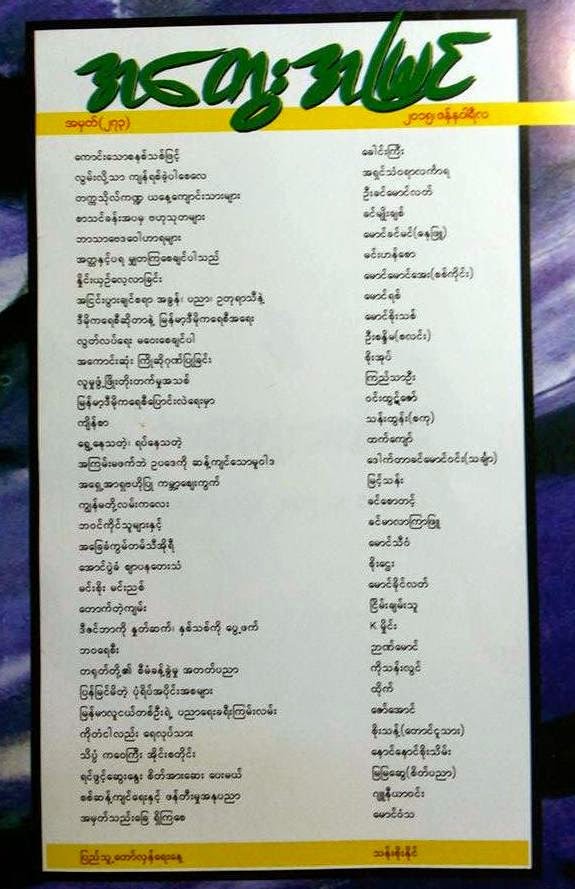 အတွေးအမြင်
အမှတ်(၂၇၃) ၂၀၁၅၊ ဇန်နဝါရီလ
ကောင်းသောစနစ်သစ်ဖြင့် ခေါင်းကြီး
လွမ်းလို့သာ ကျန်ရစ်ခဲ့ပါစေလေ အရှင်သံဝရာလင်္ကာရ
တက္ကသိုလ်ကဏ္ဍ ယနေ့ကျောင်းသားများ ဦးခင်မောင်လတ်
စာသင်ခန်းအပမှ ဗဟုသုတများ ခင်မျိုးချစ်
ဘာသာဗေဒဝေါဟာရများ မောင်ခင်မင်(ဓနုဖြူ)
အတ္တနှင့်ပရ မျှတကြစေချင်ပါသည် မင်းဟန်စော
နှိုင်းယှဉ်လေ့လာခြင်း မောင်မောင်အေး(စစ်ကိုင်း)
အငြင်းပွားချင်စရာ အခွန်၊ ပညာ၊ ဥတုရာသီနဲ့ မောင်ရစ်
ဒီမိုကရေစီဆိုတာနဲ့ မြန်မာ့ဒီမိုကရေစီအရေး မောင်စိုးသစ်
လွတ်လပ်ရေး မဝေးစေချင်ပါ ဦးစန္ဒိမ(စလင်း)
အကောင်းဆုံး ကြိုဆိုဂုဏ်ပြုခြင်း စိုးအုပ်
လူမှုဖွံ့ဖြိုးတိုးတက်မှုအသစ် ကြည်သာဦး
မြန်မာ့ဒီမိုကရေစီပြောင်းလဲရေးမှာ ဝင်းထွဋ်ဇော်
ကျိန်စာ သန်းထွန်း(စကု)
ရွှေ့နေသတဲ့၊ ရပ်နေသတဲ့ ထက်ကျော်
အကြမ်းမဖက်ဘဲ ဥပဒေကို ဆန့်ကျင်သောမူဝါဒ ဒေါက်တာခင်မောင်ဝင်း(သင်္ချာ)
အရှေ့အာရှဗဟိုပြု ကမ္ဘာ့ဈေးကွက် မြင့်သန်း
ကျွန်မတို့လမ်းကလေး ခင်စောတင့်
ဘဝင်ကိုင်သူများနှင့် ခင်မာလာကြာဖြူ
အခြေခံကွမ်တမ်သီအိုရီ မောင်သီဝံ
အောင်ပွဲခံ ဈာပနတေးသံ စိုးဌေး
မင်းစိုး မင်းညစ် မောင်ခိုင်လတ်
တောက်တဲ့ကျမ်း ငြိမ်းချမ်းသူ
ဒီဇင်ဘာကို နှုတ်ဆက်၊ နှစ်သစ်ကို ပွေ့ဖက် K မှိုင်း
ဘဝရေစီး ဉာဏ်မောင်
တရုတ်တို့၏ စီမံခန့်ခွဲမှု အတတ်ပညာ ကိုသန်းလွင်
ပြန်မြင်မိတဲ့ ပုံရိပ်အပိုင်းအစများ ထိုက်
မြန်မာလူငယ်တစ်ဦးရဲ့ ပညာရေးခရီးကြမ်းလမ်း ဇော်အောင်
ကိုတံငါလည်း ရေလုပ်သား စိုးသန့်(တောင်ငူသား)
သိပ္ပံ ကဝေကြီး အိုင်းစတိုင်း နောင်နောင်စိုးသိမ်း
ရင်ဖွင့်ဆွေးနွေး စိတ်အားဆေး ပေးမယ် မြမြဆွေ(စိတ်ပညာ)
စစ်ဆန့်ကျင်ရေးနှင့် ဖန်တီးမှုအနုပညာ ဂျူနီယာဝင်း
အမှတ်သည်းခြေ ရှိကြစေ မောင်ဝံသ
ပြည်သူ့တော်လှန်ရေးနေ့ သန်းစိုးနိုင်